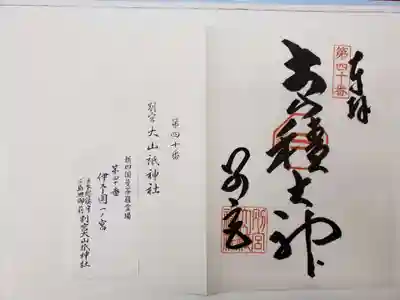 奉拝
第四十番
大山積大神
別宮
第四十番
別宮大山祇神社
新四国曼荼羅霊場
第四十番
伊予国一ノ宮
日本総鎮守
三島地御前
別宮大山祇神社